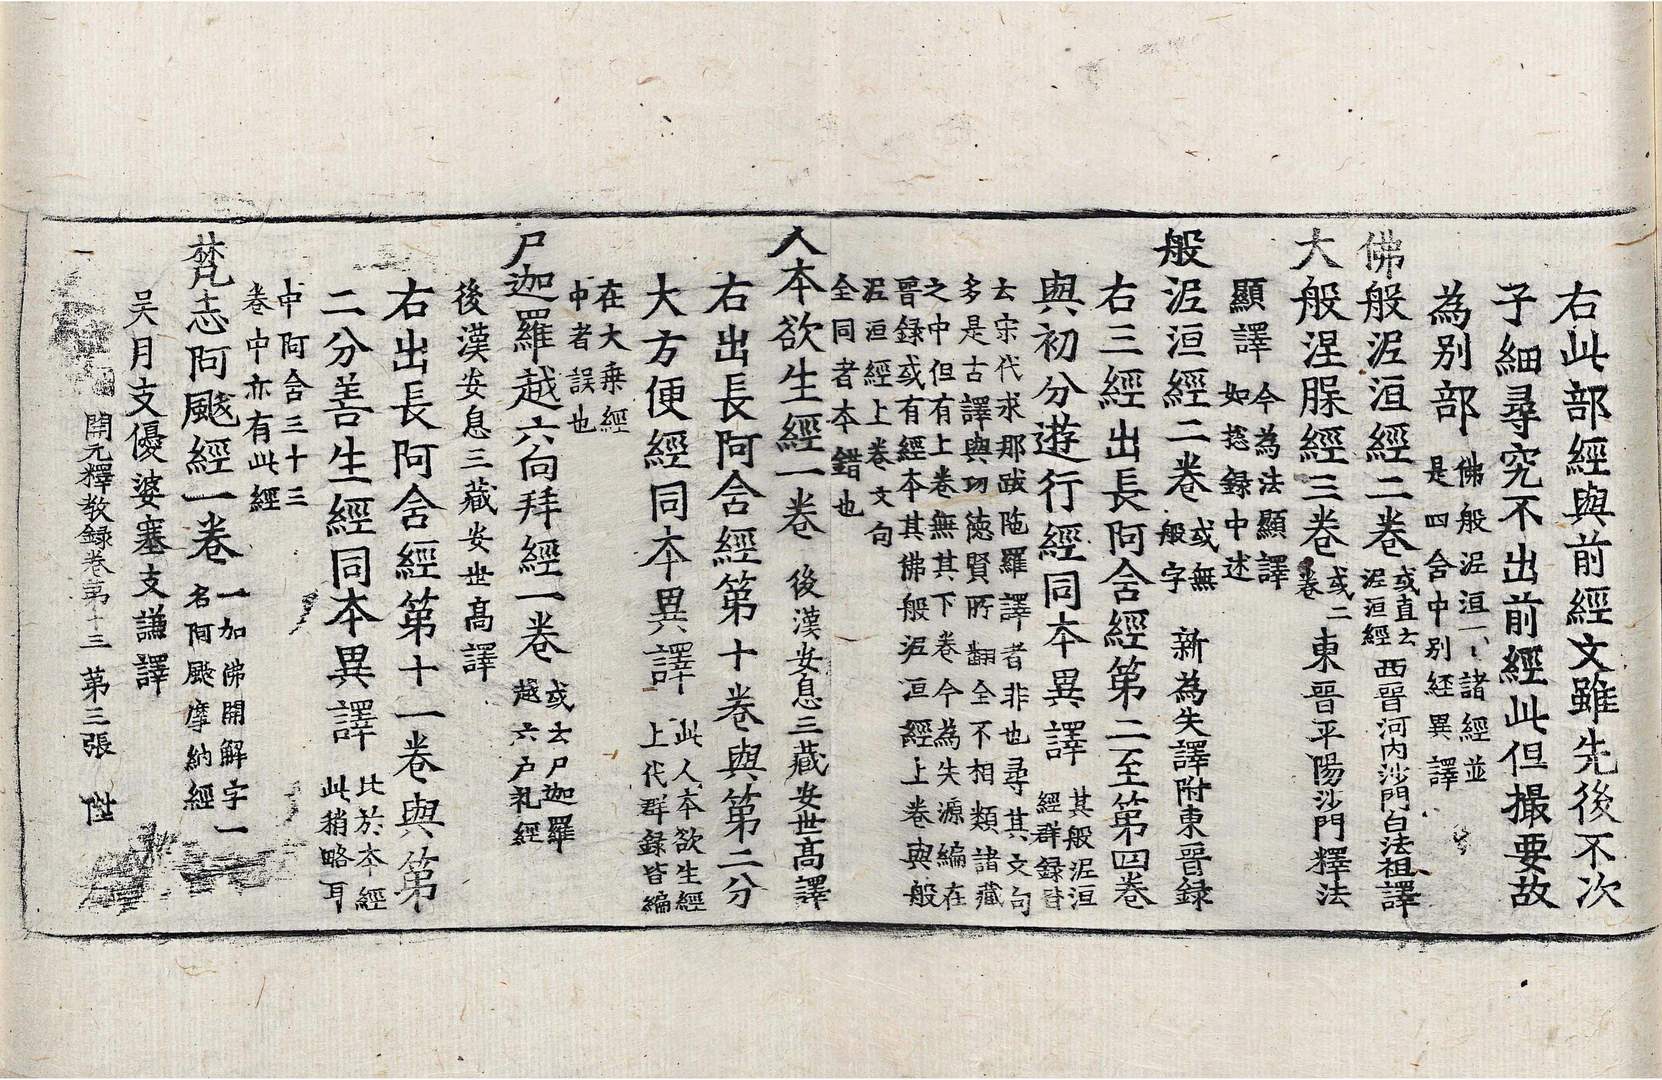 右此部經與前經文雖先後不次
子細尋究不出前經此但撮要故
為別部佛般泥洹一、諸經並是四含中別經異譯
佛般泥洹經二卷或直云泥洹經西晉河內沙門白法祖譯
大般涅槃經三卷或二卷東晉平陽沙門釋法
顯譯今為法顯譯如捴録中述
般泥洹經二卷或無般字新為失譯附東晉録
右三經出長阿含經第二至第四卷
與初分遊行經同本異譯其般泥洹經群録皆
云宋代求那跋陁羅譯者非也尋其文句
多是古譯與功德賢所翻全不相類諸藏
之中但有上卷無其下卷今為失源編在
晉録或有經本其佛般泥洹經上卷與般
泥洹經上卷文句
全同者本錯也
人本欲生經一卷後漢安息三藏安世高譯
右出長阿含經第十卷與第二分
大方便經同本異譯此人本欲生經上代群録皆編
在大乘經
中者誤也
尸迦羅越六向拜經一卷或云尸迦羅越六户礼經
後漢安息三藏安世高譯
右出長阿含經第十一卷與第
二分善生經同本異譯比於本經此稍略耳
中阿含三十三
卷中亦有此經
梵志阿颰經一卷一加佛開解字一名阿颰摩納經
吳月支優婆塞支謙譯
開元釋教録卷第十三 第三張